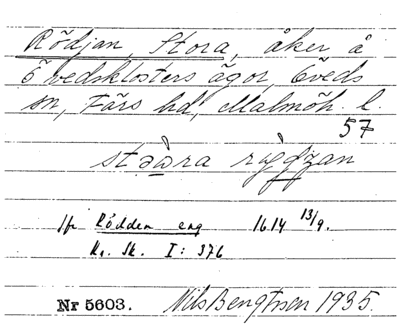 Rödjan, Stora, åker å
Övedsklosters ägor, Öveds
sn, Färs hd, Malmöh. l.
57
jfr Rödden eng 1614 13/9.
Kr. Sk. I: 376
Nr 5603. Nils Bengtsson 1935.